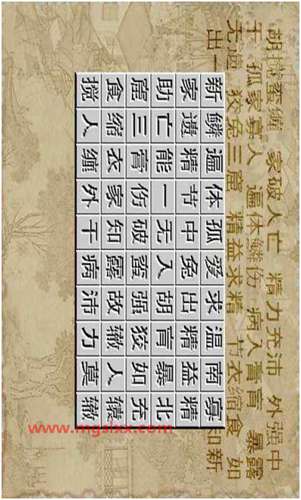 胡搅蛮缠 家破人亡 精力充沛 外强中
干 孤家寡人 遍体鳞伤 病入膏肓 暴露
无遗 狡兔三窟 精益求精 节衣缩食 如
出一 知新
新鳞遍体孤爱求温南寡
家遗精节中兔出精益精
助亡能一无入胡肓暴
窟三膏伤破蛮强狡如充
食缩衣家知露故辙人辕
搅人缠外干病沛力莫辙
www.mgslxx.com